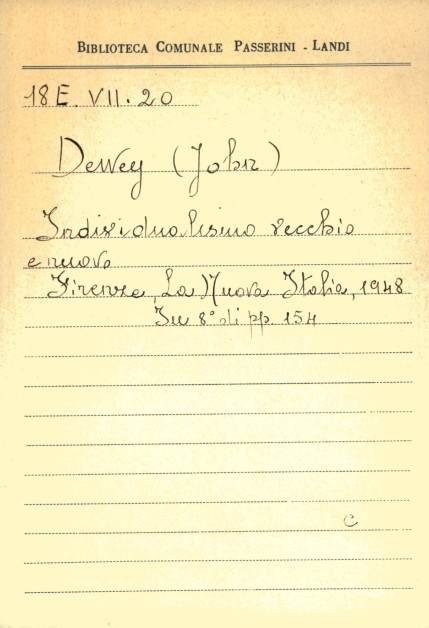 BIBLIOTECA COMUNALE PASSERINI - LANDI
18 E. VII. 20
Dewey (John)
Individualismo vecchio
e nuovo
Firenze, La Nuova Italia, 1948
In 8° di pp. 154
c